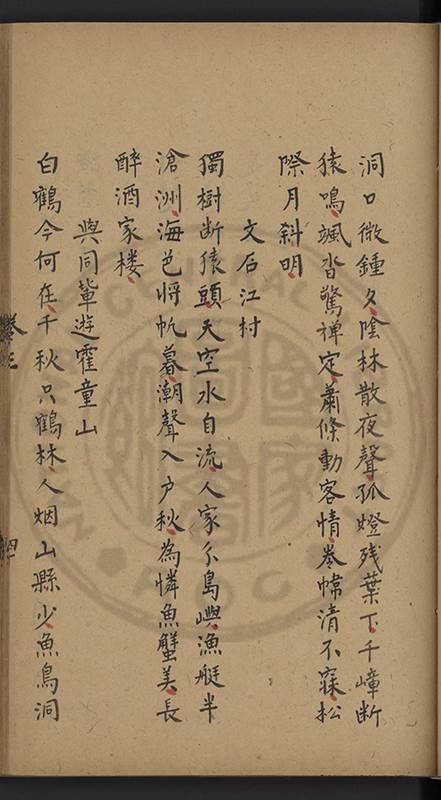 洞口微鍾夕陰林散夜聲孤燈残葉下千嶂断
猿鳴飒沓驚禅定蕭條動客情岑幃清不寐松
際月斜明
文石江村
獨樹断猿頭天空水自流人家尒島嶼漁艇半
滄洲海色将帆暮潮聲入户秋為憐魚蟹美長
醉酒家楼
與同輩遊霍童山
白鶴今何在千秋只鶴林人烟山縣少魚鳥洞
卷三 四